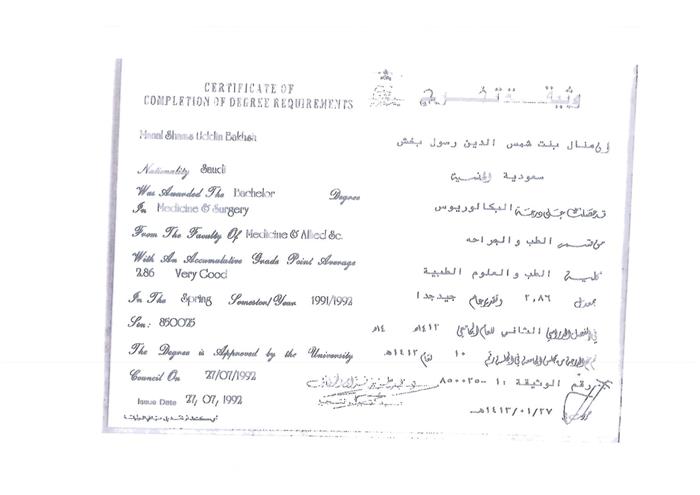 CERTIFICATE OF
COMPLETION OF DEGREE REQUIREMENTS
Manal Shams Uddin Bakhsh
Nationality Saudi
Was Awarded The Bachelor Degree
In Medicine & Surgery
From The Faculty Of Medicine & Allied Sc.
With An Accumulative Grade Point Average
2.86 Very Good
In The Spring Semester/Year 1991/1992
Sn: 850025
The Degree is Approved by the University
Council On 27/07/1992
Issue Date 27, 07, 1992
وثيقة تخرج
إن منال بنت شمس الدين رسول بخش
سعودية الجنسية
البكالوريوس
من قسم الطب والجراحه
كلية الطب والعلوم الطبية
بمعدل ٢,٨٦ وتقدير عام جيدجدا
الثاني للعام الجامعي ١٤١٢هـ
١٠ لعام ١٤١٢هـ
رقم الوثيقة ١١-٨٥٠٠٢٥
١٤١٣/٠١/٢٧هـ